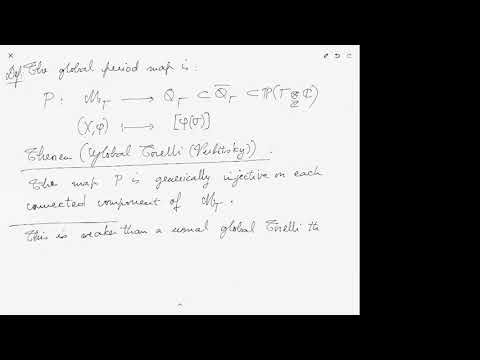 Def The global period map is :
P : M_Γ ⟶ Q_Γ ⊂ Q̄_Γ ⊂ ℙ(Γ ⊗_ℤ ℂ)
(X,φ) ⟼ [φ(σ)]
Theorem (Global Torelli (Verbitsky)) .
The map P is generically injective on each
connected component of M_Γ .
This is weaker than a usual global Torelli th